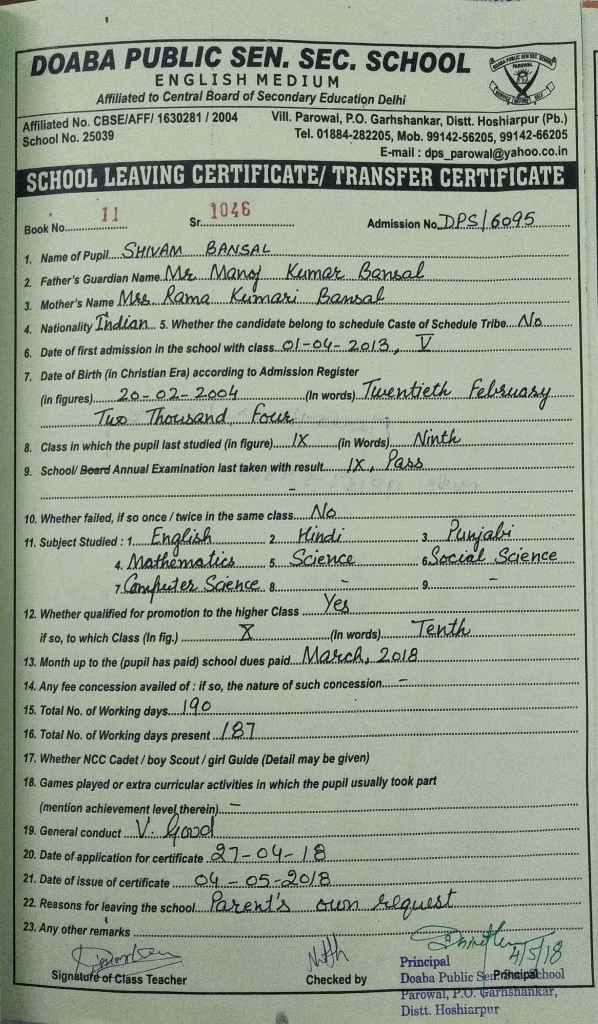 DOABA PUBLIC SEN. SEC. SCHOOL
ENGLISH MEDIUM
Affiliated to Central Board of Secondary Education Delhi
Affiliated No. CBSE/AFF/ 1630281 / 2004 Vill. Parowal, P.O. Garhshankar, Distt. Hoshiarpur (Pb.)
School No. 25039 Tel. 01884-282205, Mob. 99142-56205, 99142-66205
E-mail : dps_parowal@yahoo.co.in
SCHOOL LEAVING CERTIFICATE/ TRANSFER CERTIFICATE
Book No. 11 Sr. 1046 Admission No. DPS/6095
1. Name of Pupil SHIVAM BANSAL
2. Father's Guardian Name Mr Manoj Kumar Bansal
3. Mother's Name Mrs. Rama Kumari Bansal
4. Nationality Indian 5. Whether the candidate belong to schedule Caste of Schedule Tribe No
6. Date of first admission in the school with class 01-04-2013, V
7. Date of Birth (in Christian Era) according to Admission Register
(in figures) 20-02-2004 (In words) Twentieth February
Two Thousand Four
8. Class in which the pupil last studied (in figure) IX (in Words) Ninth
9. School/ Board Annual Examination last taken with result IX, Pass
-
10. Whether failed, if so once / twice in the same class No
11. Subject Studied : 1. English 2. Hindi 3. Punjabi
4. Mathematics 5. Science 6. Social Science
7. Computer Science 8. - 9. -
12. Whether qualified for promotion to the higher Class Yes
if so, to which Class (In fig.) X (In words) Tenth
13. Month up to the (pupil has paid) school dues paid March, 2018
14. Any fee concession availed of : if so, the nature of such concession -
15. Total No. of Working days 190
16. Total No. of Working days present 187
17. Whether NCC Cadet / boy Scout / girl Guide (Detail may be given)
18. Games played or extra curricular activities in which the pupil usually took part
(mention achievement level therein) -
19. General conduct V. Good
20. Date of application for certificate 27-04-18
21. Date of issue of certificate 04-05-2018
22. Reasons for leaving the school Parent's own request
23. Any other remarks
4/5/18
Signature of Class Teacher Checked by Principal
Principal
Doaba Public Sen. Sec. School
Parowal, P.O. Garhshankar,
Distt. Hoshiarpur